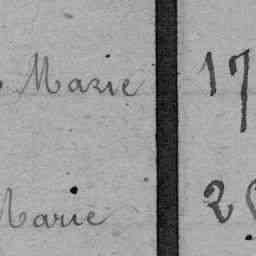 Marie 17
Marie 2